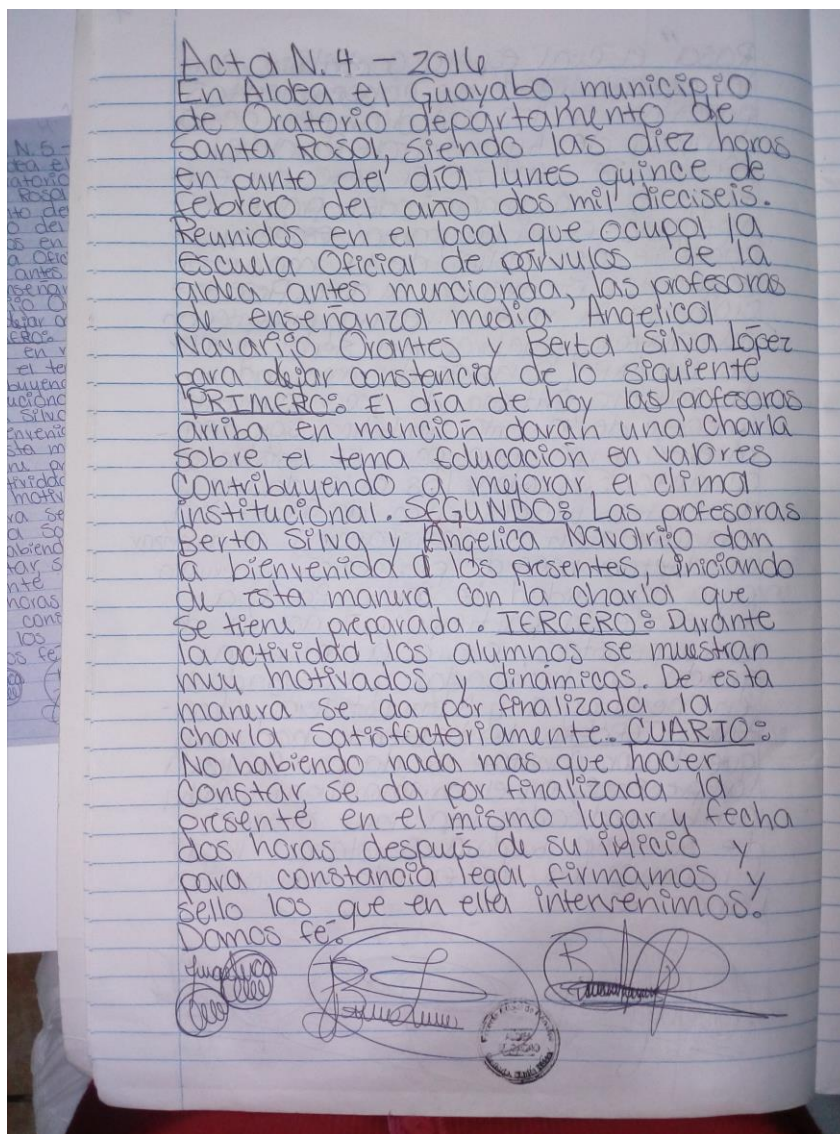 Acta N. 4 - 2016
En Aldea el Guayabo, municipio
de Oratorio departamento de
Santa Rosa, siendo las diez horas
en punto del día lunes quince de
febrero del año dos mil dieciseis.
Reunidos en el local que ocupa la
escuela Oficial de párvulos de la
aldea antes menciónda, las profesoras
de enseñanza media Angelica
Navarijo Orantes y Berta Silva López
para dejar constancia de lo siguiente
PRIMERO: El día de hoy las profesoras
arriba en mención darán una charla
sobre el tema Educación en valores
contribuyendo a mejorar el clima
institucional. SEGUNDO: Las profesoras
Berta Silva y Angelica Navarijo dan
la bienvenida a los presentes, iniciando
de esta manera con la charla que
se tiene preparada. TERCERO: Durante
la actividad los alumnos se muestran
muy motivados y dinámicos. De esta
manera se da por finalizada la
charla satisfactoriamente. CUARTO:
No habiendo nada mas que hacer
constar, se da por finalizada la
presente en el mismo lugar y fecha
dos horas después de su inicio y
para constancia legal firmamos y
sello los que en ella intervenimos.
Damos fé.